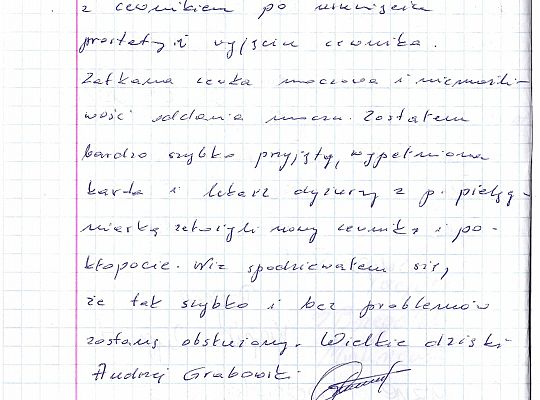 z cewnikiem po usunięciu
prostaty i wyjęciu cewnika.
Zatkana cewka moczowa i niemożli-
wość oddania moczu. Zostałem
bardzo szybko przyjęty, wypełniona
karta i lekarz dyżurny z p. pielęg-
niarką założyli nowy cewnik i po
kłopocie. Nie spodziewałem się,
że tak szybko i bez problemów
zostanę obsłużony. Wielkie dzięki
Andrzej Grabowski